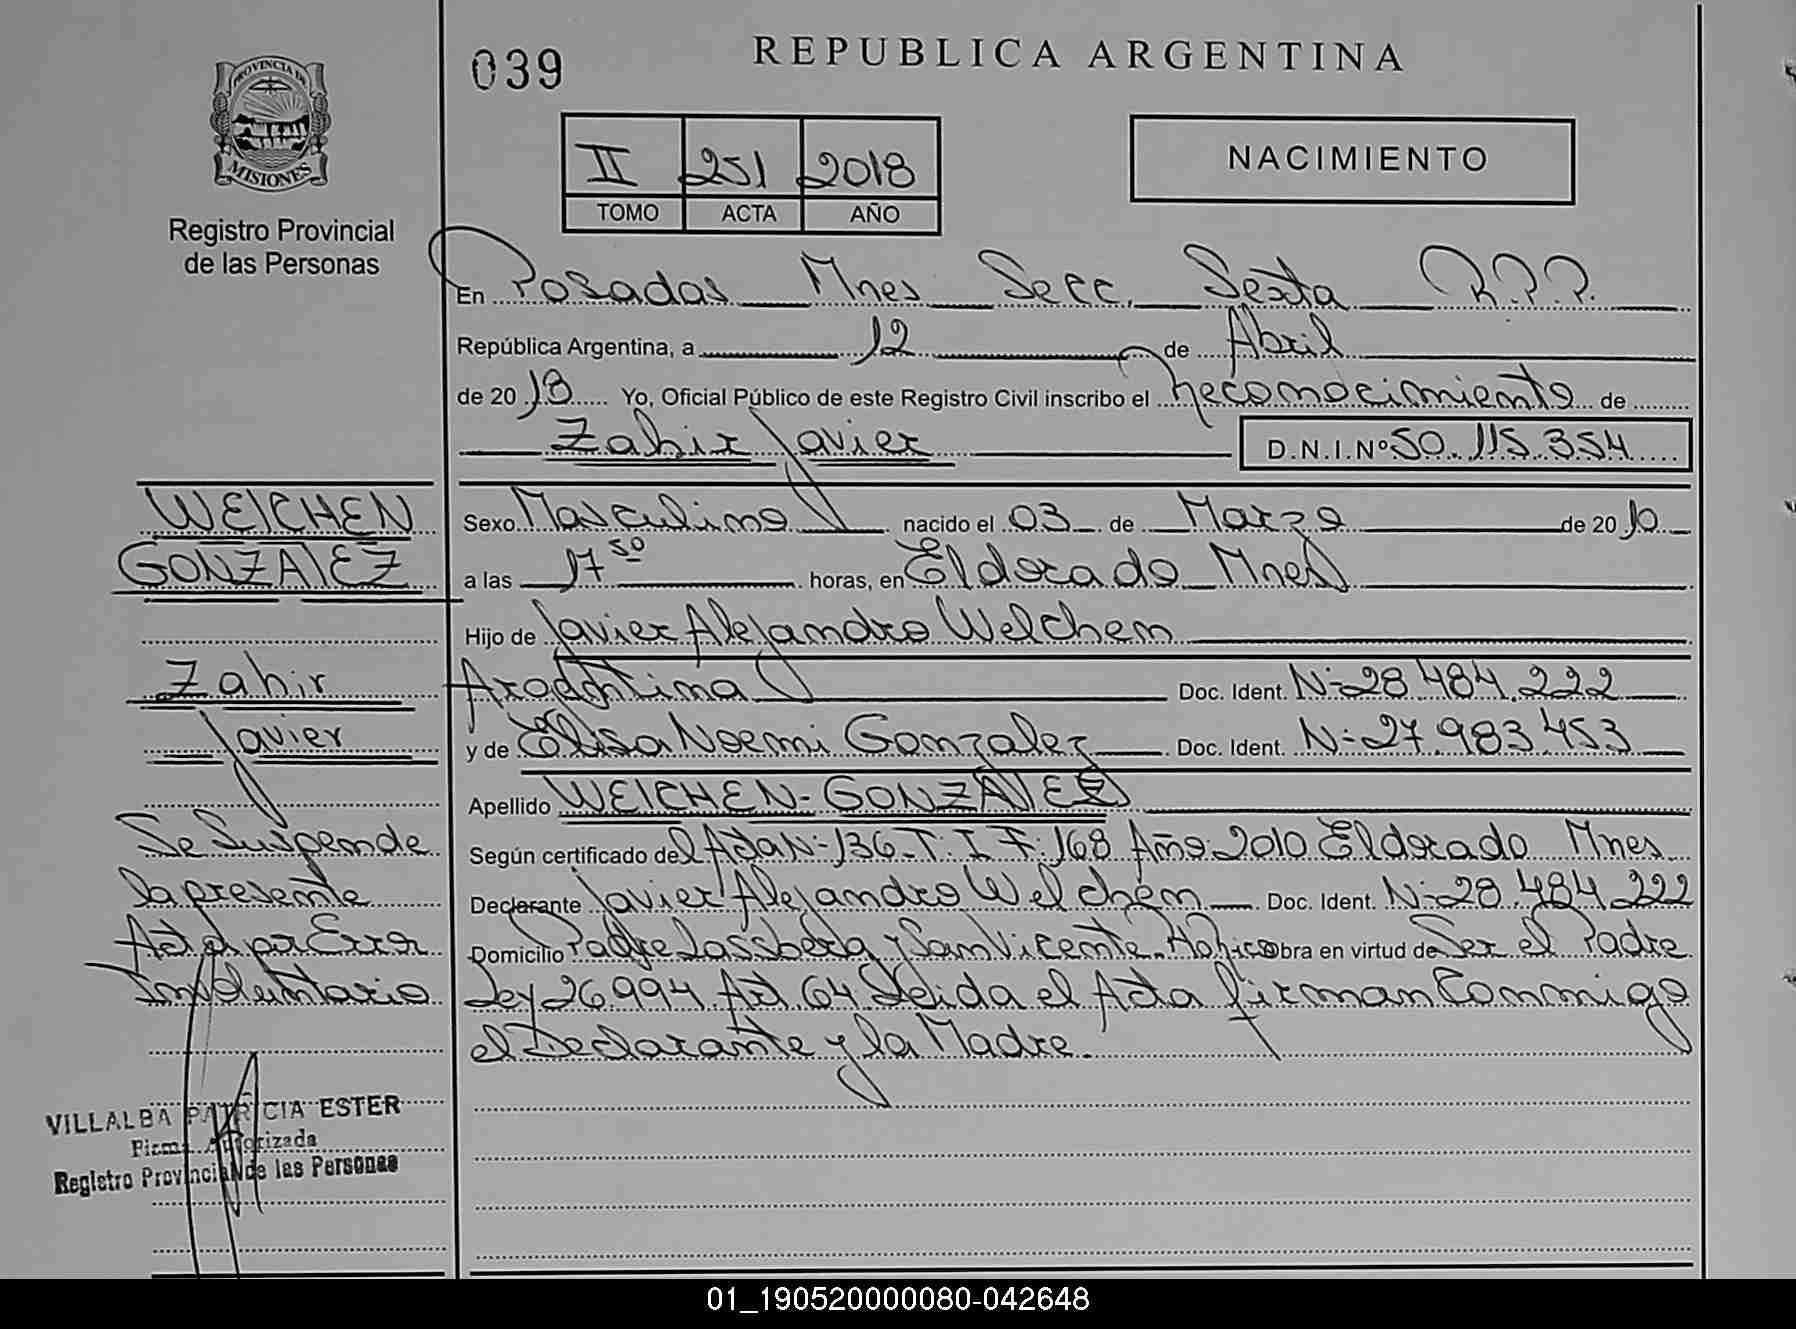 PROVINCIA DE
MISIONES
Registro Provincial
de las Personas
039
REPUBLICA ARGENTINA
II 251 2018
TOMO ACTA AÑO
NACIMIENTO
En Posadas Mnes Secc. Sexta R.P.P.
República Argentina, a 12 de Abril
de 2018 Yo, Oficial Público de este Registro Civil inscribo el Reconocimiento de
Zahir Javier D.N.I.Nº 50.115.354
Sexo Masculino nacido el 03 de Marzo de 2010
a las 17 50 horas, en Eldorado Mnes
Hijo de Javier Alejandro Welchen
Argentina Doc. Ident. Nº 28.484.222
y de Elisa Noemi Gonzalez Doc. Ident. Nº 27.983.453
Apellido WELCHEN-GONZALEZ
Según certificado del Acta Nº 136-T: I F: 168 Año 2010 Eldorado Mnes
Declarante Javier Alejandro Welchen Doc. Ident. Nº 28.484.222
Domicilio Padre y San Vicente. obra en virtud de Ser el Padre
Ley 26.994 Art. 64 Leida el Acta firman Conmigo
el Declarante y la Madre.
WELCHEN
GONZALEZ
Zahir
Javier
Se Suspende
la presente
Acta por Error
Involuntario
VILLALBA PATRICIA ESTER
Firma Autorizada
Registro Provincial de las Personas
01_190520000080-042648